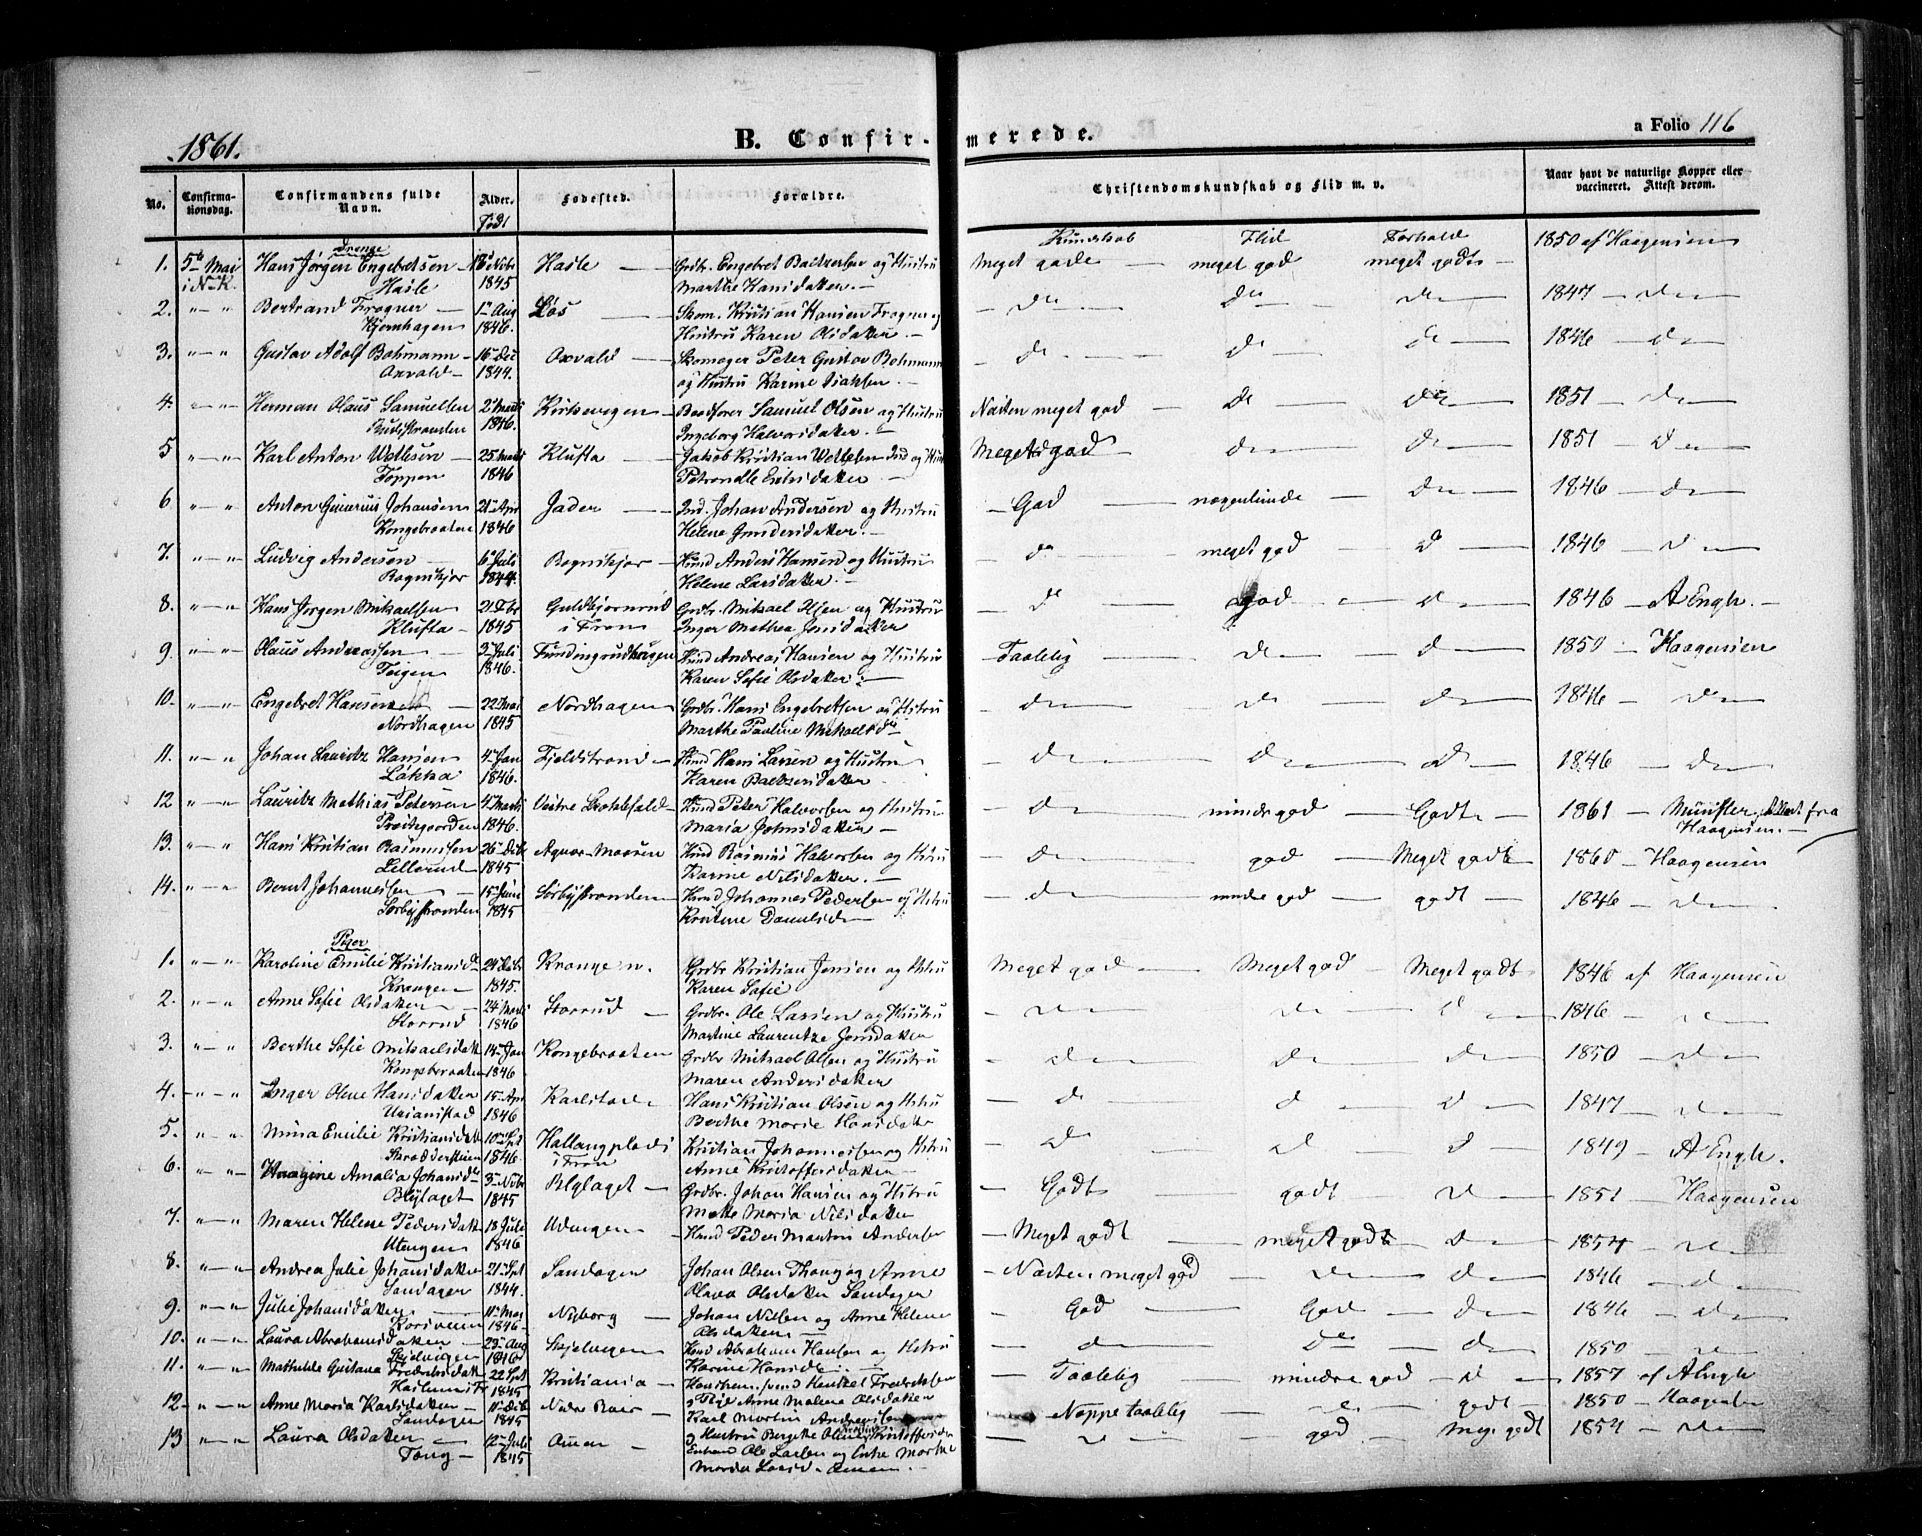 1861.
B. Confir-merede.
a Folio 116
No. Confirmationsdag. Confirmandens fulde Navn. Alder. Fødested. Forældre. Christendomskundskab og Flid m. v. Naar havt de naturlige Kopper eller vaccineret. Attest derom.
Født
Drenge Kundskab Flid Forhold
1. 5te Mai Hans Jørgen Engebretsen 18 Nvbr Hasle Grdbr. Engebret Baltzersen og Hustru Meget gode meget god meget godt 1850 af Haagensen
i N-K. Hasle 1845 Marthe Hansdatter
2. " " Bertrand Frogner 1 Aug Løs Skom. Kristian Hansen Frogner og do do do 1847 do
Kjernhagen 1846. Hustru Karen Olsdatter
3. " " Gustav Adolf Bohmann 16 Dec Oxvald Skomager Peter Gustav Bohmann do do do 1846 do
Oxvald 1844. og Hustru Karine Isaksen
4. " " Herman Olaus Samuelsen 2 Marts Kirkevigen Samuel Olsen og Hustru Næsten meget god do do 1851 do
1846. Ingeborg Halvorsdatter
5 " " Karl Anton 25 Marts Klufta Jakob Kristian Meget god do do 1851 do
Toppen 1846
6 " " Anton Gunerius Johansen 21 Apr Jader Ind. Johan Andersen og Hustru God nogenlunde do 1846 do
Kongebraaten 1846 Helene Gundersdatter
7. " " Ludvig Andersen 6 Juli Bognskjær Hmd Anders Hansen og Hustru do meget god do 1846 do
Bognskjær 1844. Helene Larsdatter
8. " " Hans Jørgen Mikaelsen 21 Fbr Guldkjernrud Grdbr. Mikael Olsen og Hustru do god do 1846 A Engh.
Klufta 1845 i Fron Inger Mathea Jensdatter
9. " " Olaus Andreassen 3 Juli Hmd Andreas Hansen og Hustru Taalelig do do 1850 Haagensen
Teigen 1846. Karen Sofie Olsdatter
10. " " Engebret Hansen 22 Mai Nordhagen Grdbr. Hans Engebretsen og Hstru do do do 1846 do
Nordhagen 1845 Marthe Pauline Mikaelsdr
11. " " Johan Lauritz Hansen 4 Jan Fjeldstrand Hmd Hans Larsen og Hustru do do do 1846 do
Løkka 1846. Karen Baltzersdatter
12 " " Lauritz Mathias Petersen 4 Marts Vestre Skotbefald Hmd Peter Halvorsen og Hustru do mindre god Godt 1861 Münster, Attest fra
Prestegaarden 1846. Maria Johnsdatter Haagensen.
13. " " Hans Kristian Rasmussen 26 Dcbr Agnor Maaren Hmd Rasmus Halvorsen og Hstru do god Meget godt 1860 Haagensen
Lillerud 1845 Karine Nilsdatter
14. " " Bernt Johannessen 15 Juni Sørbystranden Hmd Johannes Pedersen og Hstru do mindre god godt 1846 do
Sørbystranden 1845 Kristine Danielsd
Piger
1. " " Karoline Emilie Kristiansd 24 Dcbr Krangen. Grdbr Kristian Jensen og Hstru Meget god Meget god Meget godt 1846 af Haagensen
Krangen 1845. Karen Sofie
2. " " Anne Sofie Olsdatter 24 Marts Storrud Grdbr. Ole Larsen og Hustru do do do 1846 do
Storrud 1846 Martine Laurentze Jensdatter
3. " " Berthe Sofie Mikaelsdatt 14 Jan Kongebraaten Grdbr Mikael Olsen og Hustru do do do 1850 do
Kongsbraaten 1846 Maren Andersdatter
4. " " Inger Olene Hansdatter 15 Apr Karlstad Hans Kristian Olsen og Hstru do do do 1847 do
1846 Berthe Marie Hansdatt
5. " " Nina Emilie Kristiansdatt 10 Spt Hallangplads Kristian Johannesen og Hstru do do do 1849 A Engh.
1846. i Fron Anne Kristoffersdatter
6. " " Haagine Amalia Johansdr 3 Nvbr Blylaget Grdbr. Johan Hansen og Hstru Godt godt do 1851 Haagensen
Blylaget 1845 Mette Maria Nilsdatter
7. " " Maren Helene Pedersdatt 18 Juli Udengen Hmd Peder Martin Andersen Meget godt meget godt do 1854 do
Utengen 1846
8. " " Andrea Julie Johansdatter 21 Spt Sandagen Johan Olsen Thong og Anne Næsten meget god do do 1846 do
Sandager 1844. Olava Olsdatter Sandager
9. " " Julie Johansdatter 11 Mai Nyborg Johan Nilsen og Anne Helene God God do 1846 do
Korsveien 1846 Olsdatter
10. " " Laura Abrahamsdatter 23 Aug Skjelvigen Hmd Abraham Hansen og Hstru do do do 1850 do
Skjelvigen 1846 Karine Hansdr
11. " " Mathilde Gustava Fredriksdatt 22 Spt Kristiania Fredriksen Taalelig mindre god do 1857 af A Engh
1845 Anne Malene Olsdatter
12 " " Anne Maria Karlsdatter 11 Dcb Nedre Roer Karl Martin Andreassen Neppe taalelig do godt 1850 Haagensen
Sandagen 1845
13 " " Laura Olsdatter 12 Juli og Hustru Kristoffersdr do god Meget godt 1854 do
Tong 1845 Enkemand Ole Larsen og Enke Marthe
Maria Larsd.